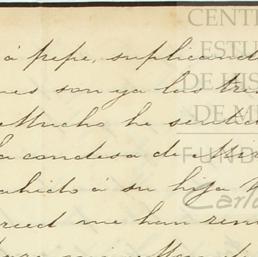 á pepe, suplicand
nes son ya las tres
Mucho he sentid
la condesa de Mer
sabido á su hija
rced me han rem
CENT
ESTU
DE HIS
DE M
FUND
Carlo